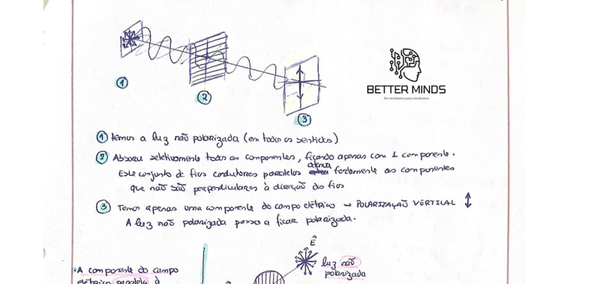 BETTER MINDS
1
2
3
① Temos a luz não polarizada (em todos os sentidos)
② Absorve seletivamente todas as componentes, ficando apenas com 1 componente.
Este conjunto de fios condutores paralelos atenua fortemente as componentes
que não são perpendiculares à direção dos fios
③ Temos apenas uma componente do campo elétrico → POLARIZAÇÃO VERTICAL ↕
A luz não polarizada passa a ficar polarizada.
E
luz não
polarizada
*A componente do campo
elétrico paralela à